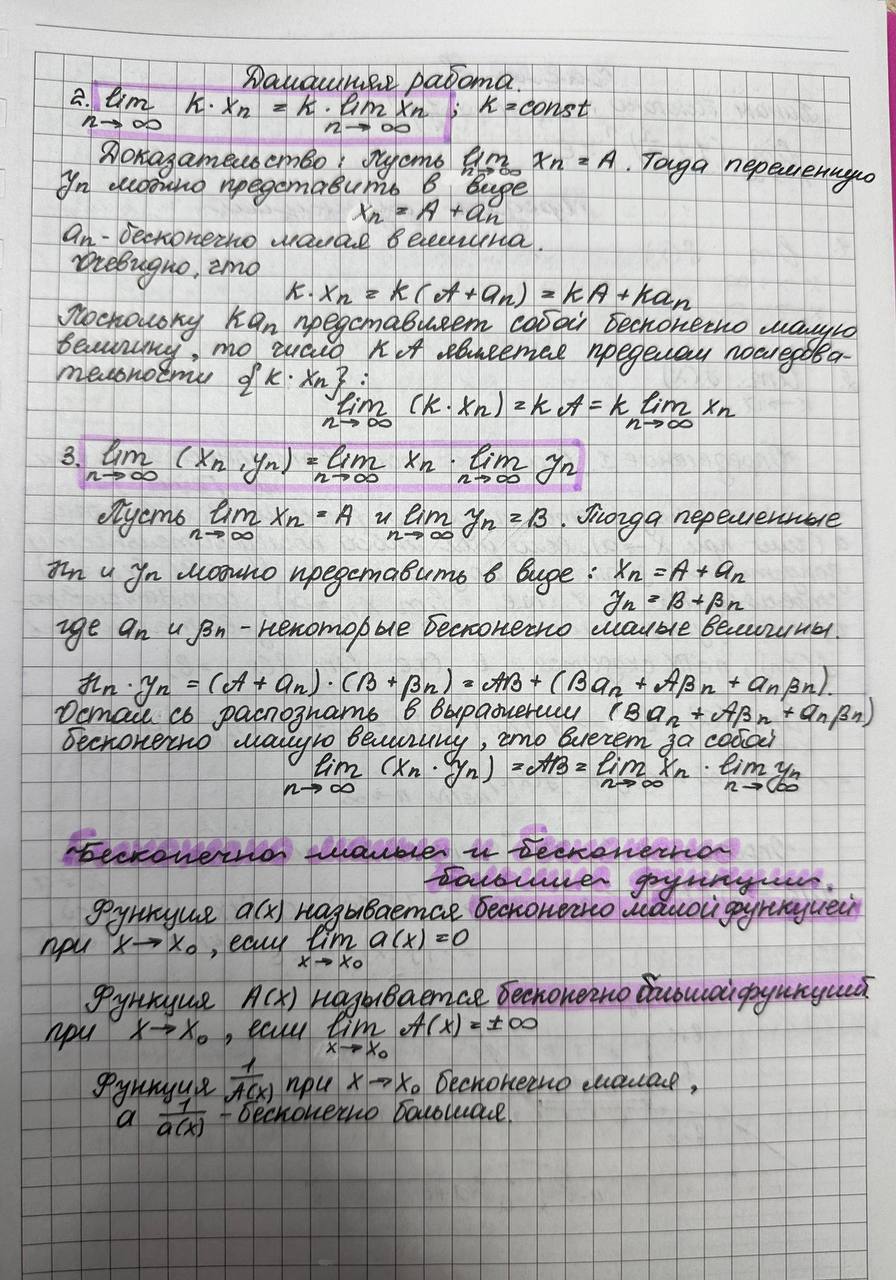 Домашняя работа.
2. lim K·xₙ = K·lim xₙ ; K = const
n→∞ n→∞
Доказательство: Пусть lim xₙ = A. Тогда переменную
n→∞
yₙ можно представить в виде
xₙ = A + aₙ
aₙ - бесконечно малая величина.
Очевидно, что
K·xₙ = K(A + aₙ) = KA + Kaₙ
Поскольку Kaₙ представляет собой бесконечно малую
величину, то число KA является пределом последова-
тельности {K·xₙ}:
lim (K·xₙ) = KA = K lim xₙ
n→∞ n→∞
3. lim (xₙ, yₙ) = lim xₙ · lim yₙ
n→∞ n→∞ n→∞
Пусть lim xₙ = A и lim yₙ = B. Тогда переменные
n→∞ n→∞
xₙ и yₙ можно представить в виде: xₙ = A + aₙ
yₙ = B + βₙ
где aₙ и βₙ - некоторые бесконечно малые величины.
xₙ·yₙ = (A + aₙ)·(B + βₙ) = AB + (Baₙ + Aβₙ + aₙβₙ).
Осталось распознать в выражении (Baₙ + Aβₙ + aₙβₙ)
бесконечно малую величину, что влечет за собой
lim (xₙ · yₙ) = AB = lim xₙ · lim yₙ
n→∞ n→∞ n→∞
Бесконечно малые и бесконечно
большие функции.
Функция a(x) называется бесконечно малой функцией
при x→x₀, если lim a(x) = 0
x→x₀
Функция A(x) называется бесконечно большой функцией
при x→x₀, если lim A(x) = ±∞
x→x₀
Функция 1/A(x) при x→x₀ бесконечно малая,
а 1/a(x) - бесконечно большая.